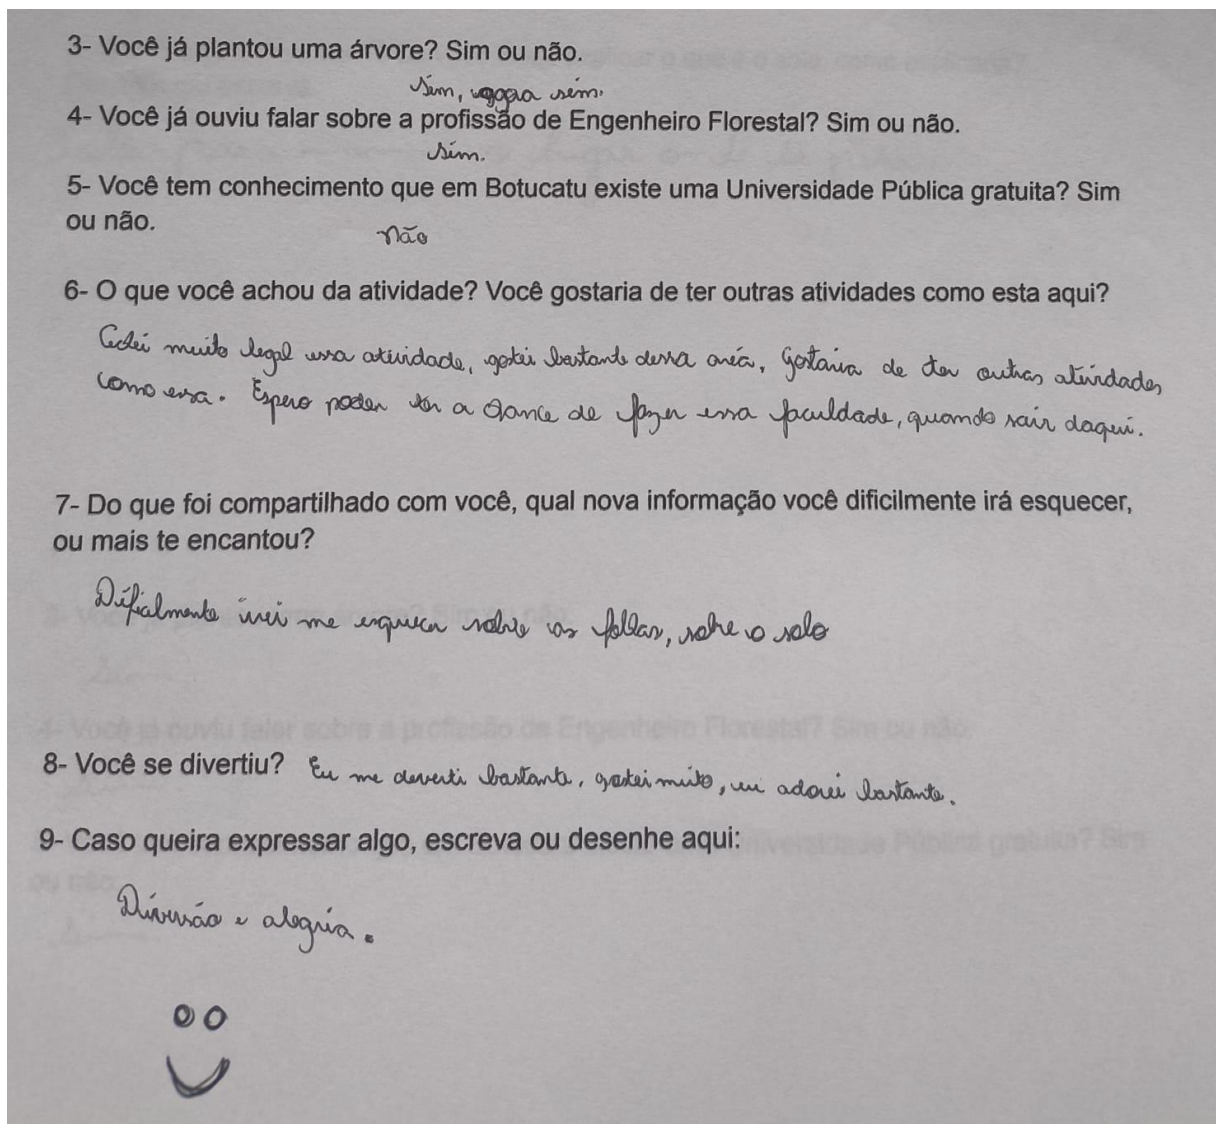 3- Você já plantou uma árvore? Sim ou não.
Sim, agora sim.
4- Você já ouviu falar sobre a profissão de Engenheiro Florestal? Sim ou não.
Sim.
5- Você tem conhecimento que em Botucatu existe uma Universidade Pública gratuita? Sim
ou não.
não
6- O que você achou da atividade? Você gostaria de ter outras atividades como esta aqui?
muito legal essa atividade, gotei bastante dessa areá, Gostaria de ter outras atividades
como essa. Espero poder ter a chance de fazer essa faculdade, quando sair daqui.
7- Do que foi compartilhado com você, qual nova informação você dificilmente irá esquecer,
ou mais te encantou?
irei me esquecer sobre as , sobre o solo
8- Você se divertiu? Eu me deverti bastante, gostei muito, eu adorei bastante.
9- Caso queira expressar algo, escreva ou desenhe aqui:
Diversão e alegria.